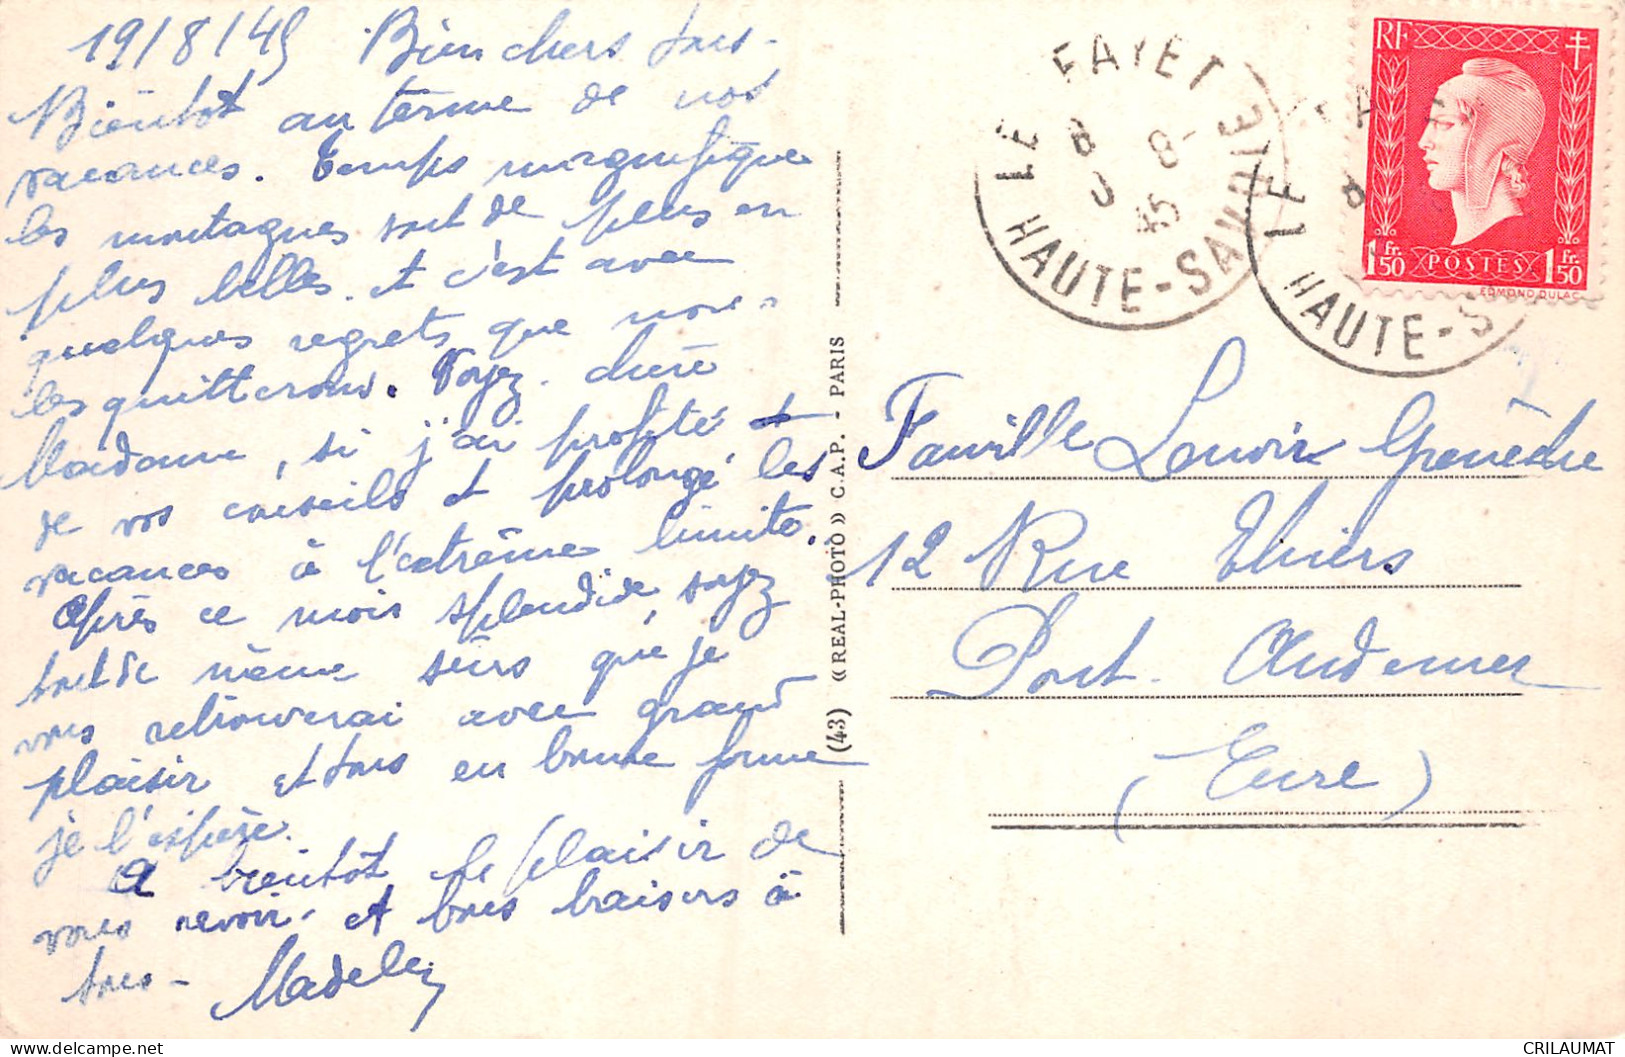 19/8/45 Bien chers tous -
Bientôt au terme de nos
vacances. Temps magnifique
les montagnes sont de plus en
plus belles. et c'est avec
quelques regrets que nous
les quitterons. Voyez. chère
Madame, si j'ai profité
de vos conseils et prolongé les
vacances à l'extrême limite.
Après ce mois splendide, soyez
tout de même sûrs que je
vous retrouverai avec grand
plaisir et tous en bonne forme
je l'espère.
A bientôt le plaisir de
vous revoir. et bons baisers à
tous -
Madeley
(43) «REAL-PHOTO» C.A.P. - PARIS
LE FAYET
8 8-
45
HAUTE-SAVOIE
LE
HAUTE-S
RF
1 Fr. 50
POSTES
1 Fr. 50
EDMOND DULAC
Famille Lenoir Genêche
12 Rue Thiers
Pont. Audemer
(Eure)
18/08/2024 13:26
CRILAUMAT